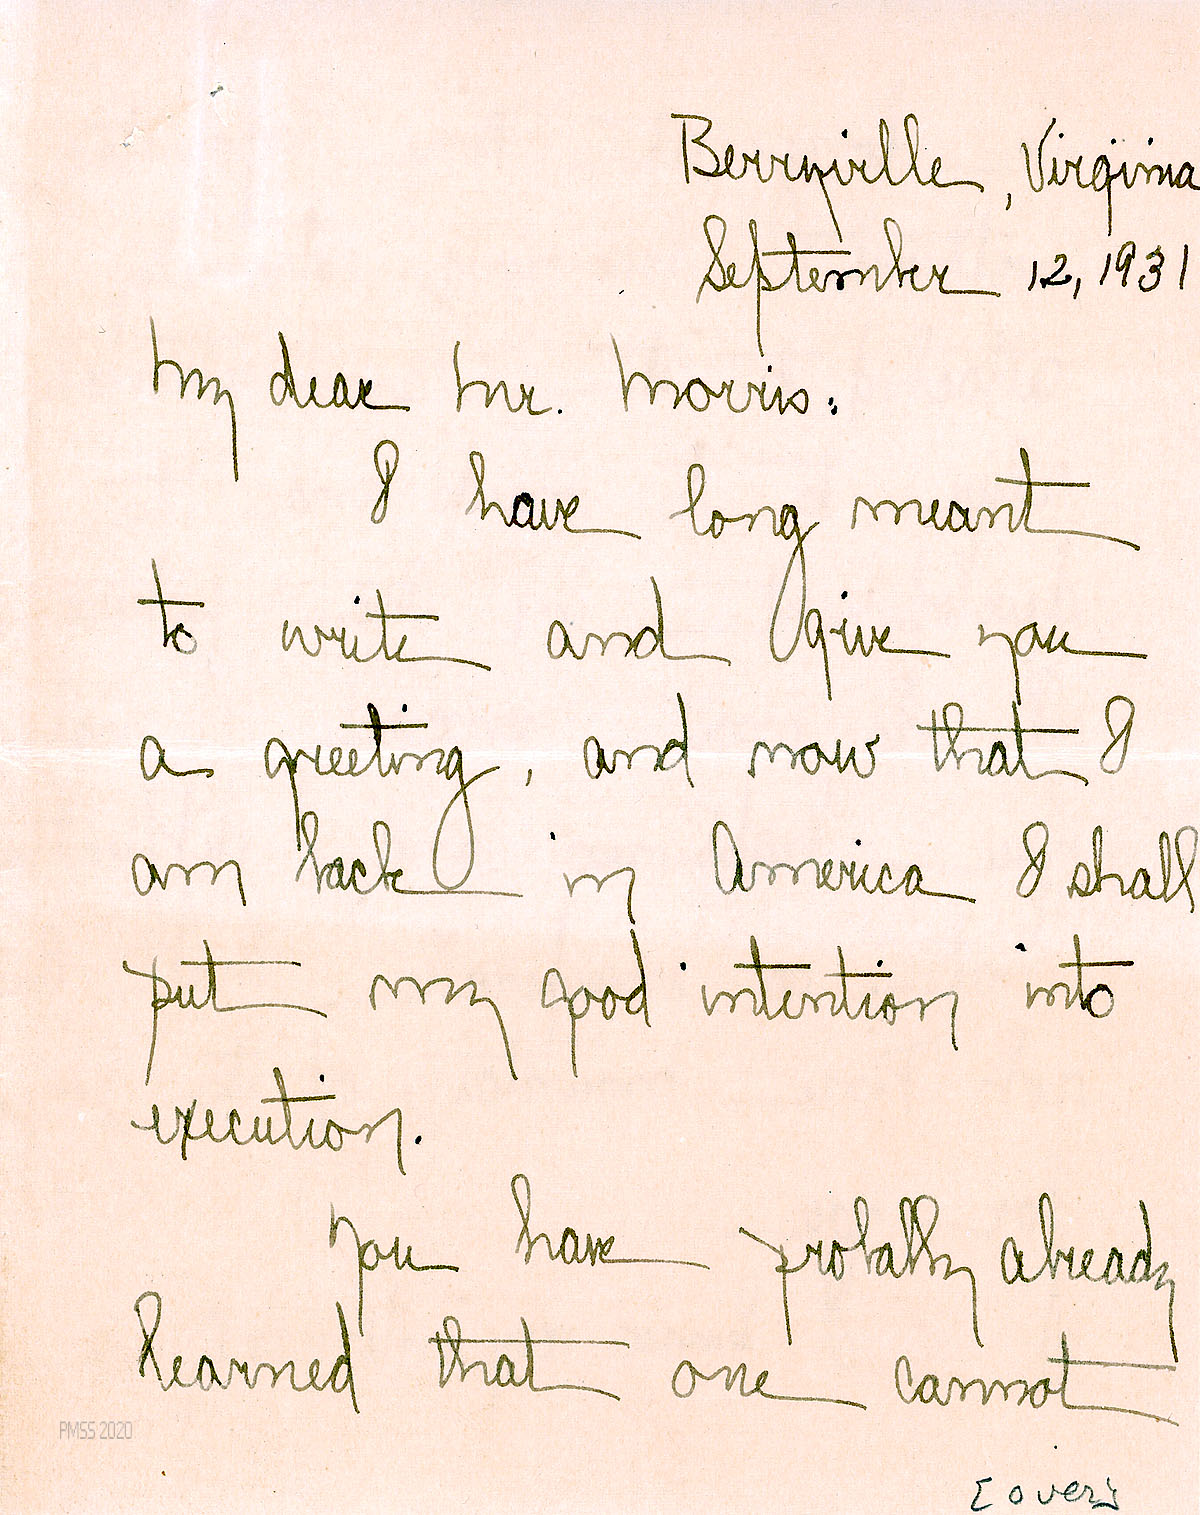 Berryville, Virginia
September 12, 1931
My dear Mr. Morris:
I have long meant
to write and give you
a greeting, and now that I
am back in America I shall
put my good intention into
execution.
You have probably already
learned that one cannot
PMSS 2020
[over]